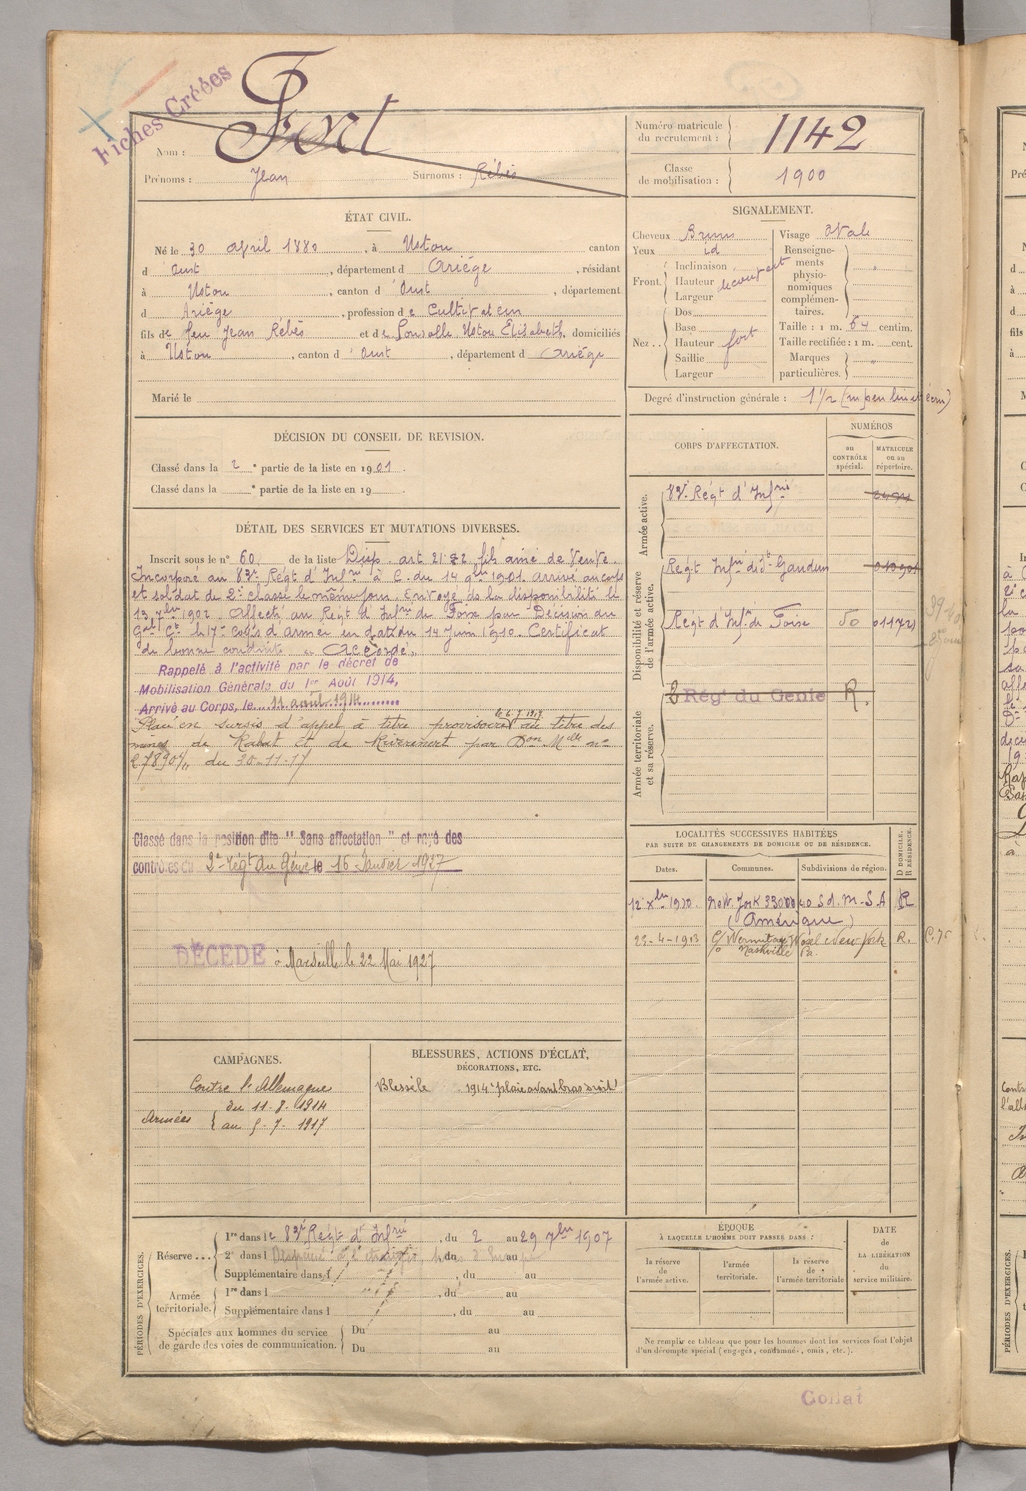 Fiches Créées
Nom : Fort
Prénoms : Jean Surnoms : Rébés
Numéro matricule du recrutement : 1142
Classe de mobilisation : 1900
ÉTAT CIVIL.
Né le 30 april 1880, à Ustou canton
d'Oust, département d Ariège, résidant
à Ustou, canton d'Oust, département
d Ariège, profession de Cultivateur
fils de feu Jean Rébés et de Ustou Elisabeth, domiciliés
à Ustou, canton d'Oust, département d Ariége
Marié le
SIGNALEMENT.
Cheveux Bruns
Yeux id
Front. Inclinaison
Hauteur découvert
Largeur
Nez.. Dos
Base
Hauteur fort
Saillie
Largeur
Visage Ovale
Renseignements physionomiques complémentaires. "
Taille : 1 m. 64 centim.
Taille rectifiée : 1 m. cent.
Marques particulières. "
Degré d'instruction générale : 1 1/2
DÉCISION DU CONSEIL DE REVISION.
Classé dans la 2e partie de la liste en 1901.
Classé dans la e partie de la liste en 19 .
DÉTAIL DES SERVICES ET MUTATIONS DIVERSES.
Inscrit sous le n° 60 de la liste Disp. art. 21-§2, fils ainé de Veuve.
Incorporé au 83e Régt d'Infrie à C. du 14 9bre 1901. arrivé au corps
et soldat de 2e classe le même jour. Envoyé de la disponibilité le
13 7bre 1902. Affecté au Régt d'Infrie de Foix par Décision du
Gal Ct le 17e corps d'armée en date du 14 Juin 1910. Certificat
de bonne conduite "Accordé"
Rappelé à l'activité par le décret de
Mobilisation Générale du 1er Août 1914,
Arrivé au Corps, le 11 août 1914
Placé en sursis d'appel à titre provisoire le 6.7.1917 au titre des
mines de Rabat et de Riverenert par Don Melle n°
27890 du 30-11-17
Classé dans la position dite "Sans affectation" et rayé des
contrôles du 2e Régt du Génie le 16 Janvier 1927
DÉCÉDÉ à Marseille le 22 Mai 1927
CORPS D'AFFECTATION.
NUMÉROS
au CONTRÔLE spécial.
MATRICULE ou au répertoire.
Armée active.
83e Régt d'Infrie
Disponibilité et réserve de l'armée active.
Régt Infrie de St Gaudens
Régt d'Infie de Foix 50 01172
Armée territoriale et sa réserve.
2 Régt du Génie R.
LOCALITÉS SUCCESSIVES HABITÉES
PAR SUITE DE CHANGEMENTS DE DOMICILE OU DE RÉSIDENCE.
Dates. Communes. Subdivisions de région. D DOMICILE. R RÉSIDENCE.
12 Xbre 1910. New York R
(Amérique)
23-4-1913 New York R.
Nashville
CAMPAGNES.
Contre l'Allemagne
Armées du 11-8-1914
au 5-7-1917
BLESSURES, ACTIONS D'ÉCLAT, DÉCORATIONS, ETC.
Blessé le 1914 "plaie avant bras droit"
PÉRIODES D'EXERCICES.
Réserve... 1re dans le 83e Régt d'Infrie, du 2 au 29 7bre 1907
2e dans l , du au
Supplémentaire dans l , du au
Armée territoriale. 1re dans l , du au
Supplémentaire dans l , du au
Spéciales aux hommes du service de garde des voies de communication. Du au
Du au
ÉPOQUE
À LAQUELLE L'HOMME DOIT PASSER DANS :
la réserve de l'armée active.
l'armée territoriale.
la réserve de l'armée territoriale
DATE de LA LIBÉRATION du service militaire.
Ne remplir ce tableau que pour les hommes dont les services font l'objet
d'un décompte spécial (engagés, condamnés, omis, etc.).